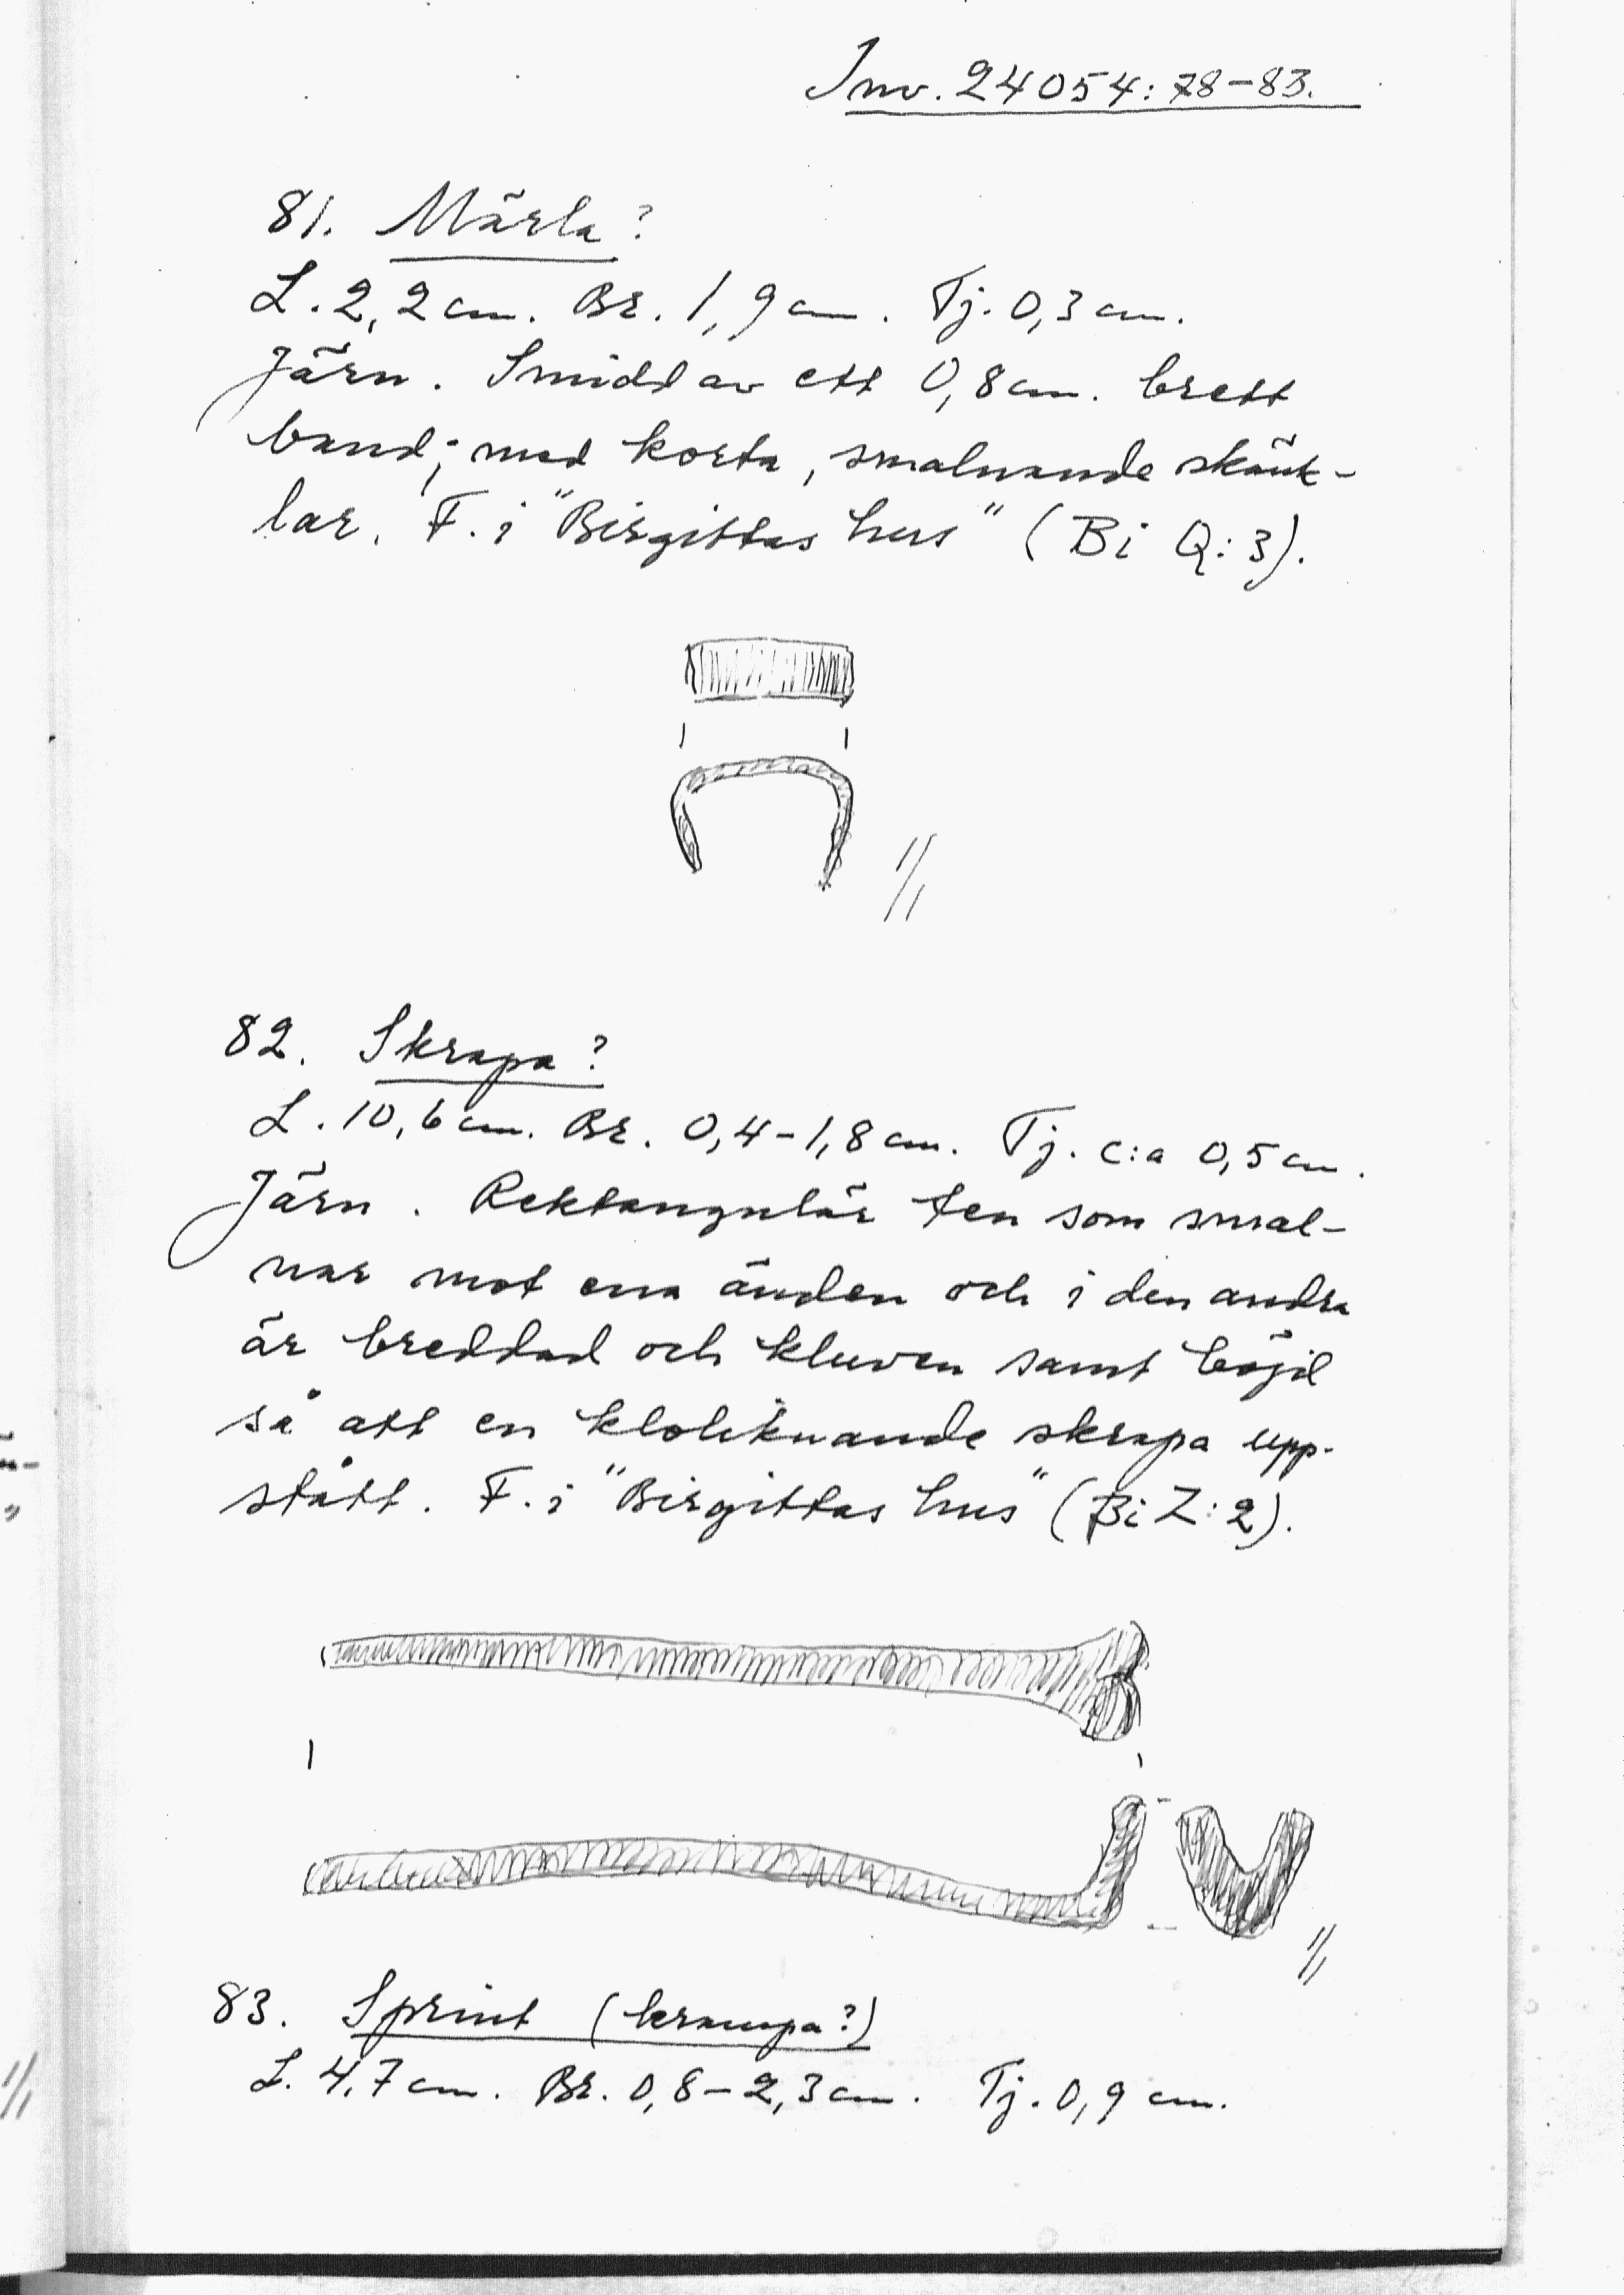 Inv. 24054: 78-83.
81. Märla?
L. 2,2 cm. Br. 1,9 cm. Tj. 0,3 cm.
Järn. Smidd av ett 0,8 cm. brett
band; med korta, smalnande skänk-
lar. F. i "Birgittas hus" (Bi Q:3).
1/1
82. Skrapa?
L. 10,6 cm. Br. 0,4-1,8 cm. Tj. c:a 0,5 cm.
Järn. Rektangulär ten som smal-
nar mot ena änden och i den andra
är breddad och kluven samt böjd
så att en kloliknande skrapa upp-
stått. F. i "Birgittas hus" (Bi Z:2).
1/1
83. Sprint (krampa?)
L. 4,7 cm. Br. 0,8-2,3 cm. Tj. 0,9 cm.
1/1